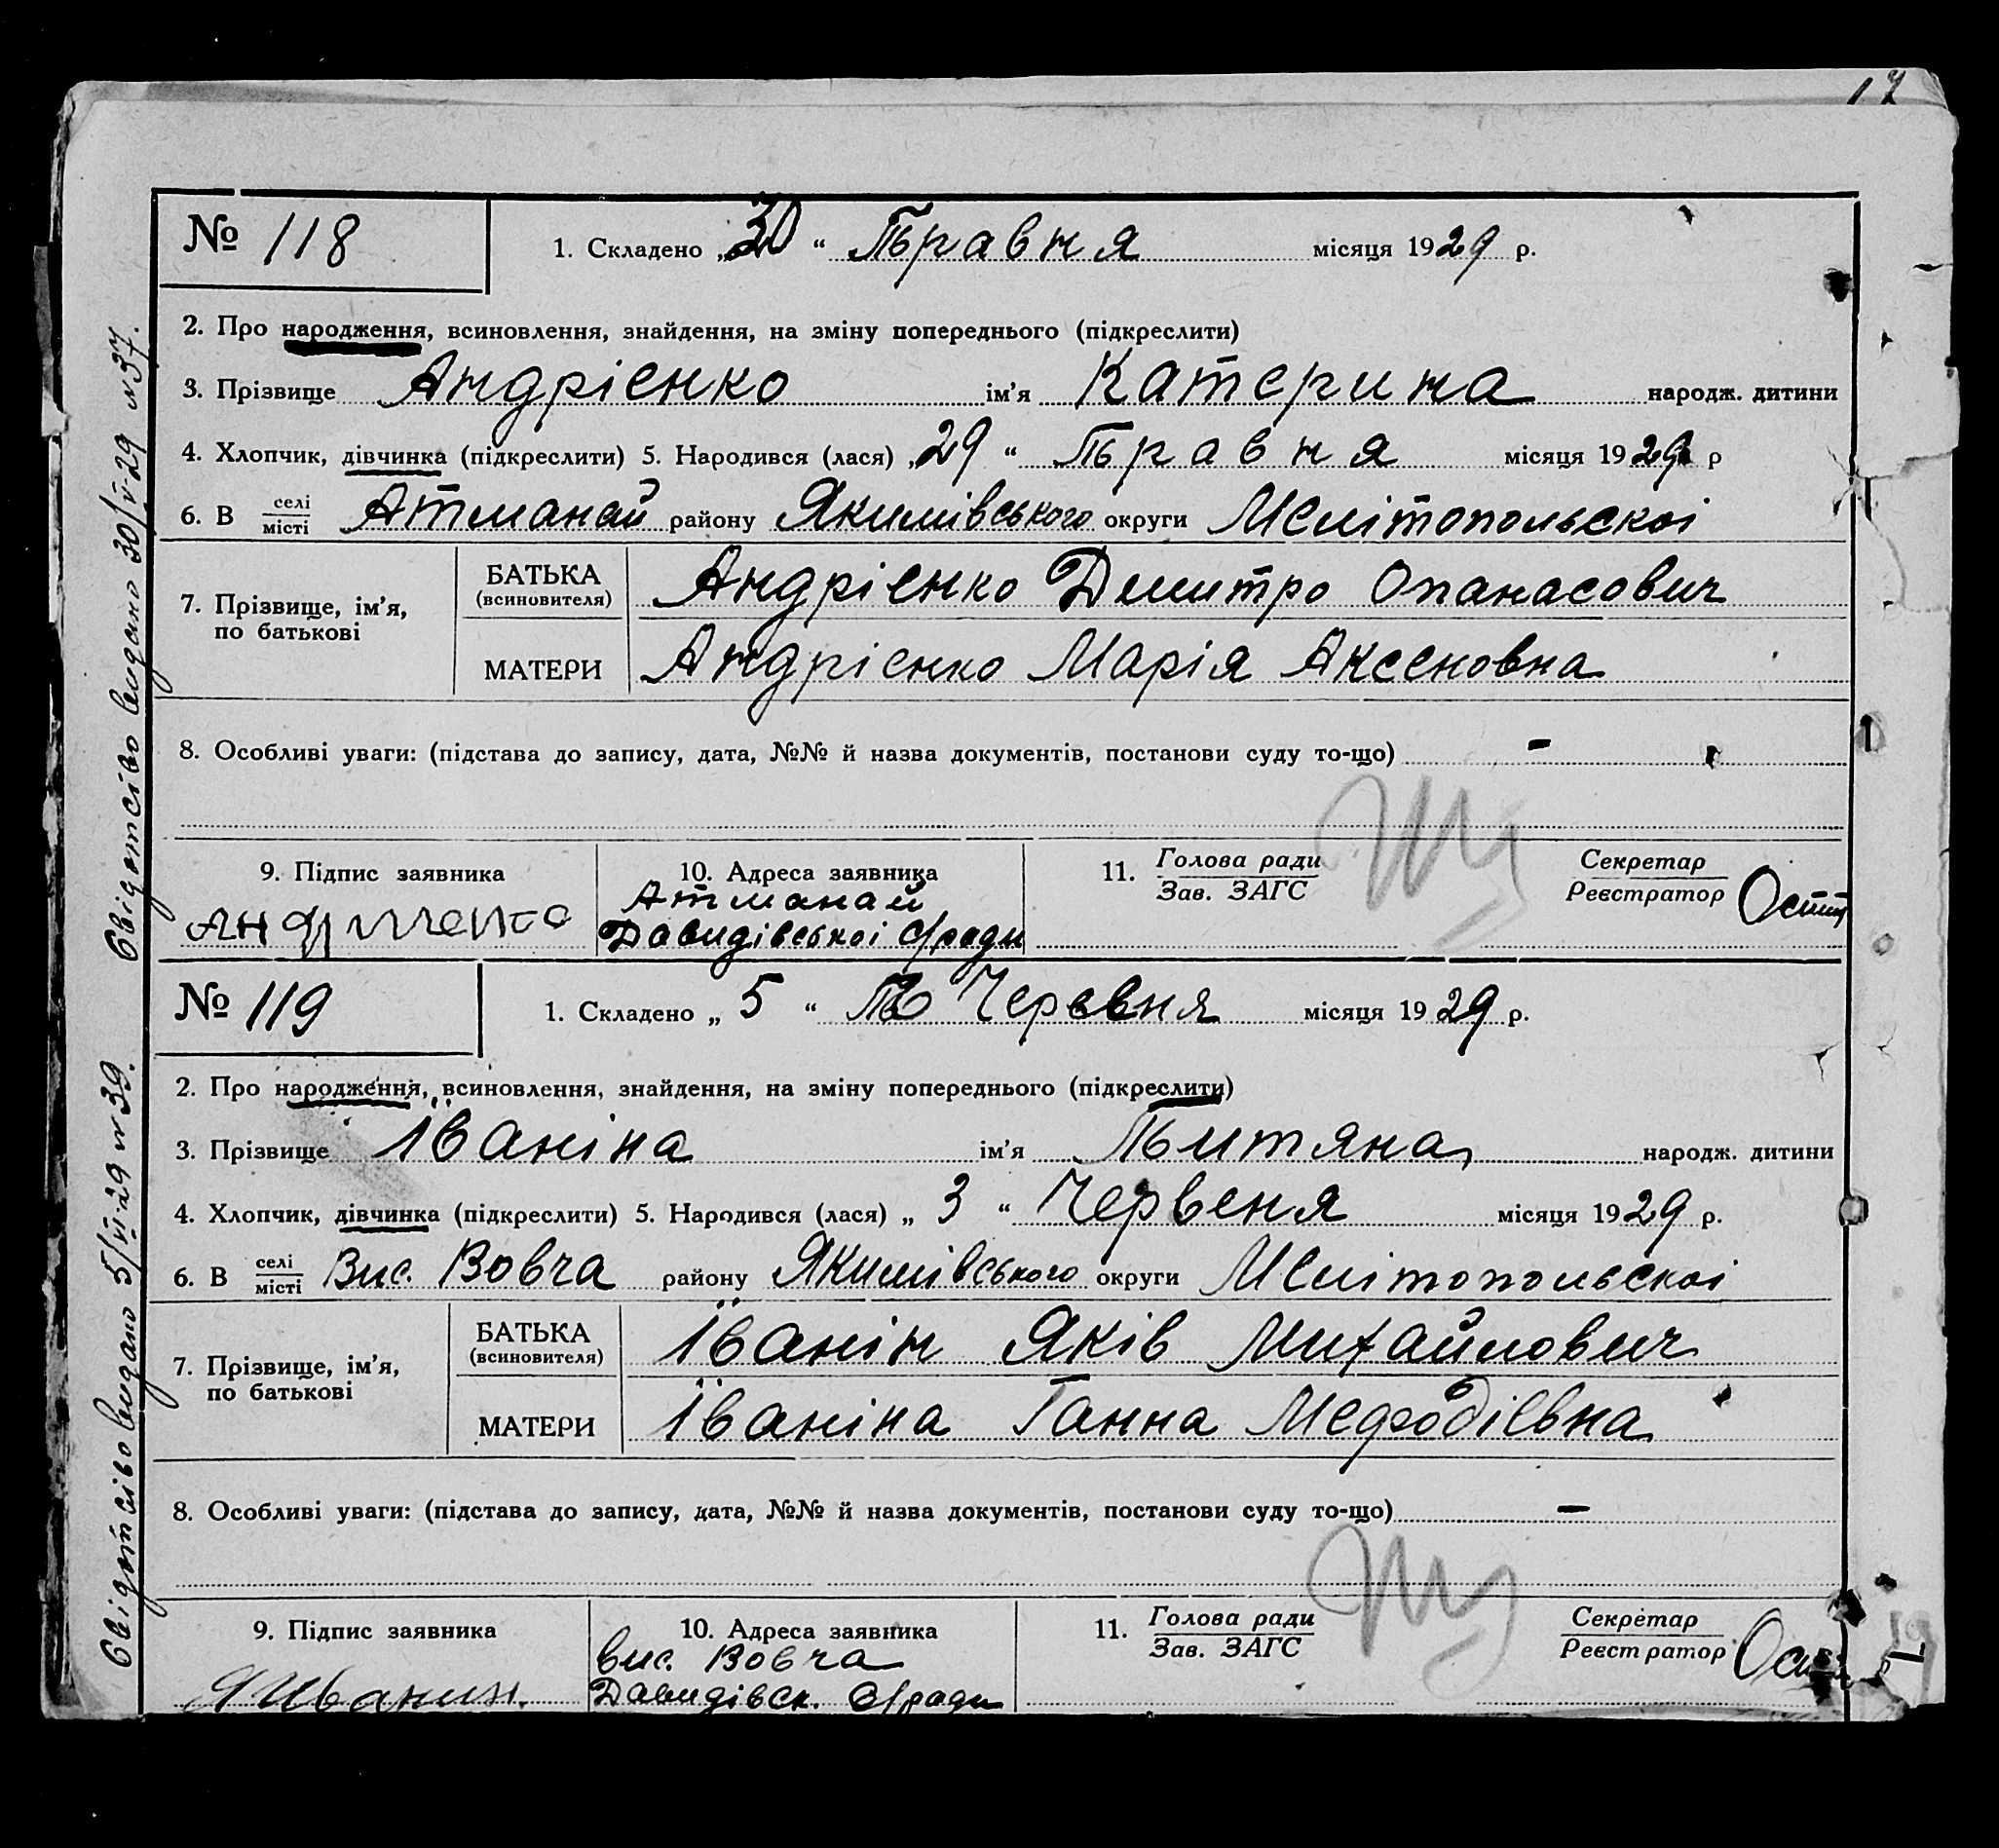 17
№ 118
1. Складено „30“ Травня місяця 1929 р.
2. Про народження, всиновлення, знайдення, на зміну попереднього (підкреслити)
3. Прізвище Андрієнко ім’я Катерина народж. дитини
4. Хлопчик, дівчинка (підкреслити) 5. Народився (лася) „29“ Травня місяця 1929 р
6. В селі/місті Атманай району Якимівського округи Мелітопольскоі
7. Прізвище, ім’я, по батькові
БАТЬКА (всиновителя) Андрієнко Дмитро Опанасович
МАТЕРИ Андрієнко Марія Аксеновна
8. Особливі уваги: (підстава до запису, дата, №№ й назва документів, постанови суду то-що) -
9. Підпис заявника
10. Адреса заявника
Атманай
Давидівськоі С/ради
11. Голова ради
Зав. ЗАГС
Секретар
Реєстратор
Свідоцтво видано 30/V-29 №37.
№ 119
1. Складено „5“ Червня місяця 1929 р.
2. Про народження, всиновлення, знайдення, на зміну попереднього (підкреслити)
3. Прізвище Їваніна ім’я Титяна народж. дитини
4. Хлопчик, дівчинка (підкреслити) 5. Народився (лася) „3“ Червеня місяця 1929 р.
6. В селі/місті Вис. Вовча району Якимівського округи Мелітопольскоі
7. Прізвище, ім’я, по батькові
БАТЬКА (всиновителя) Їванін Яків Михайлович
МАТЕРИ Їваніна Ганна Мефодієвна
8. Особливі уваги: (підстава до запису, дата, №№ й назва документів, постанови суду то-що) -
9. Підпис заявника
Я Иванин.
10. Адреса заявника
вис. Вовча
Давидівск. С/ради
11. Голова ради
Зав. ЗАГС
Секретар
Реєстратор
Свідоцтво видано 5/VI-29 №39.